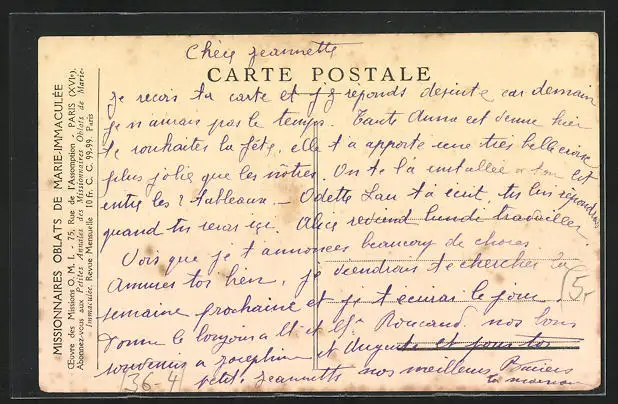 Chère Jeannette
CARTE POSTALE
Je recois ta carte et j'y réponds de suite car demain
je n'aurais pas le temps. Tante Anna est venue hier
te souhaiter la fête, elle t'a apporté une très belle
plus jolie que les nôtres. On te l'a installée
entre les 2 tableaux. Odette t'a écrit, tu lui répondras
quand tu seras ici. Alice revient lundi travailler.
Vois que je t'annonces beaucoup de choses.
Amuses toi bien, je viendrai te chercher la
semaine prochaine et je t'ecrirai le jour.
Donne le bonjour a Mr et Mme nos bons
souvenirs a Joséphine et Auguste et pour toi
petite Jeannette nos meilleurs Baisers
ta maman
(5-
(36-4)
MISSIONNAIRES OBLATS DE MARIE-IMMACULÉE
Œuvre des Missions O. M. I. - 75, Rue de l'Assomption - PARIS (XVIe).
Abonnez-vous aux Petites Annales des Missionnaires Oblats de Marie-
Immaculée. Revue Mensuelle 10 fr. C. C. 99-99. Paris